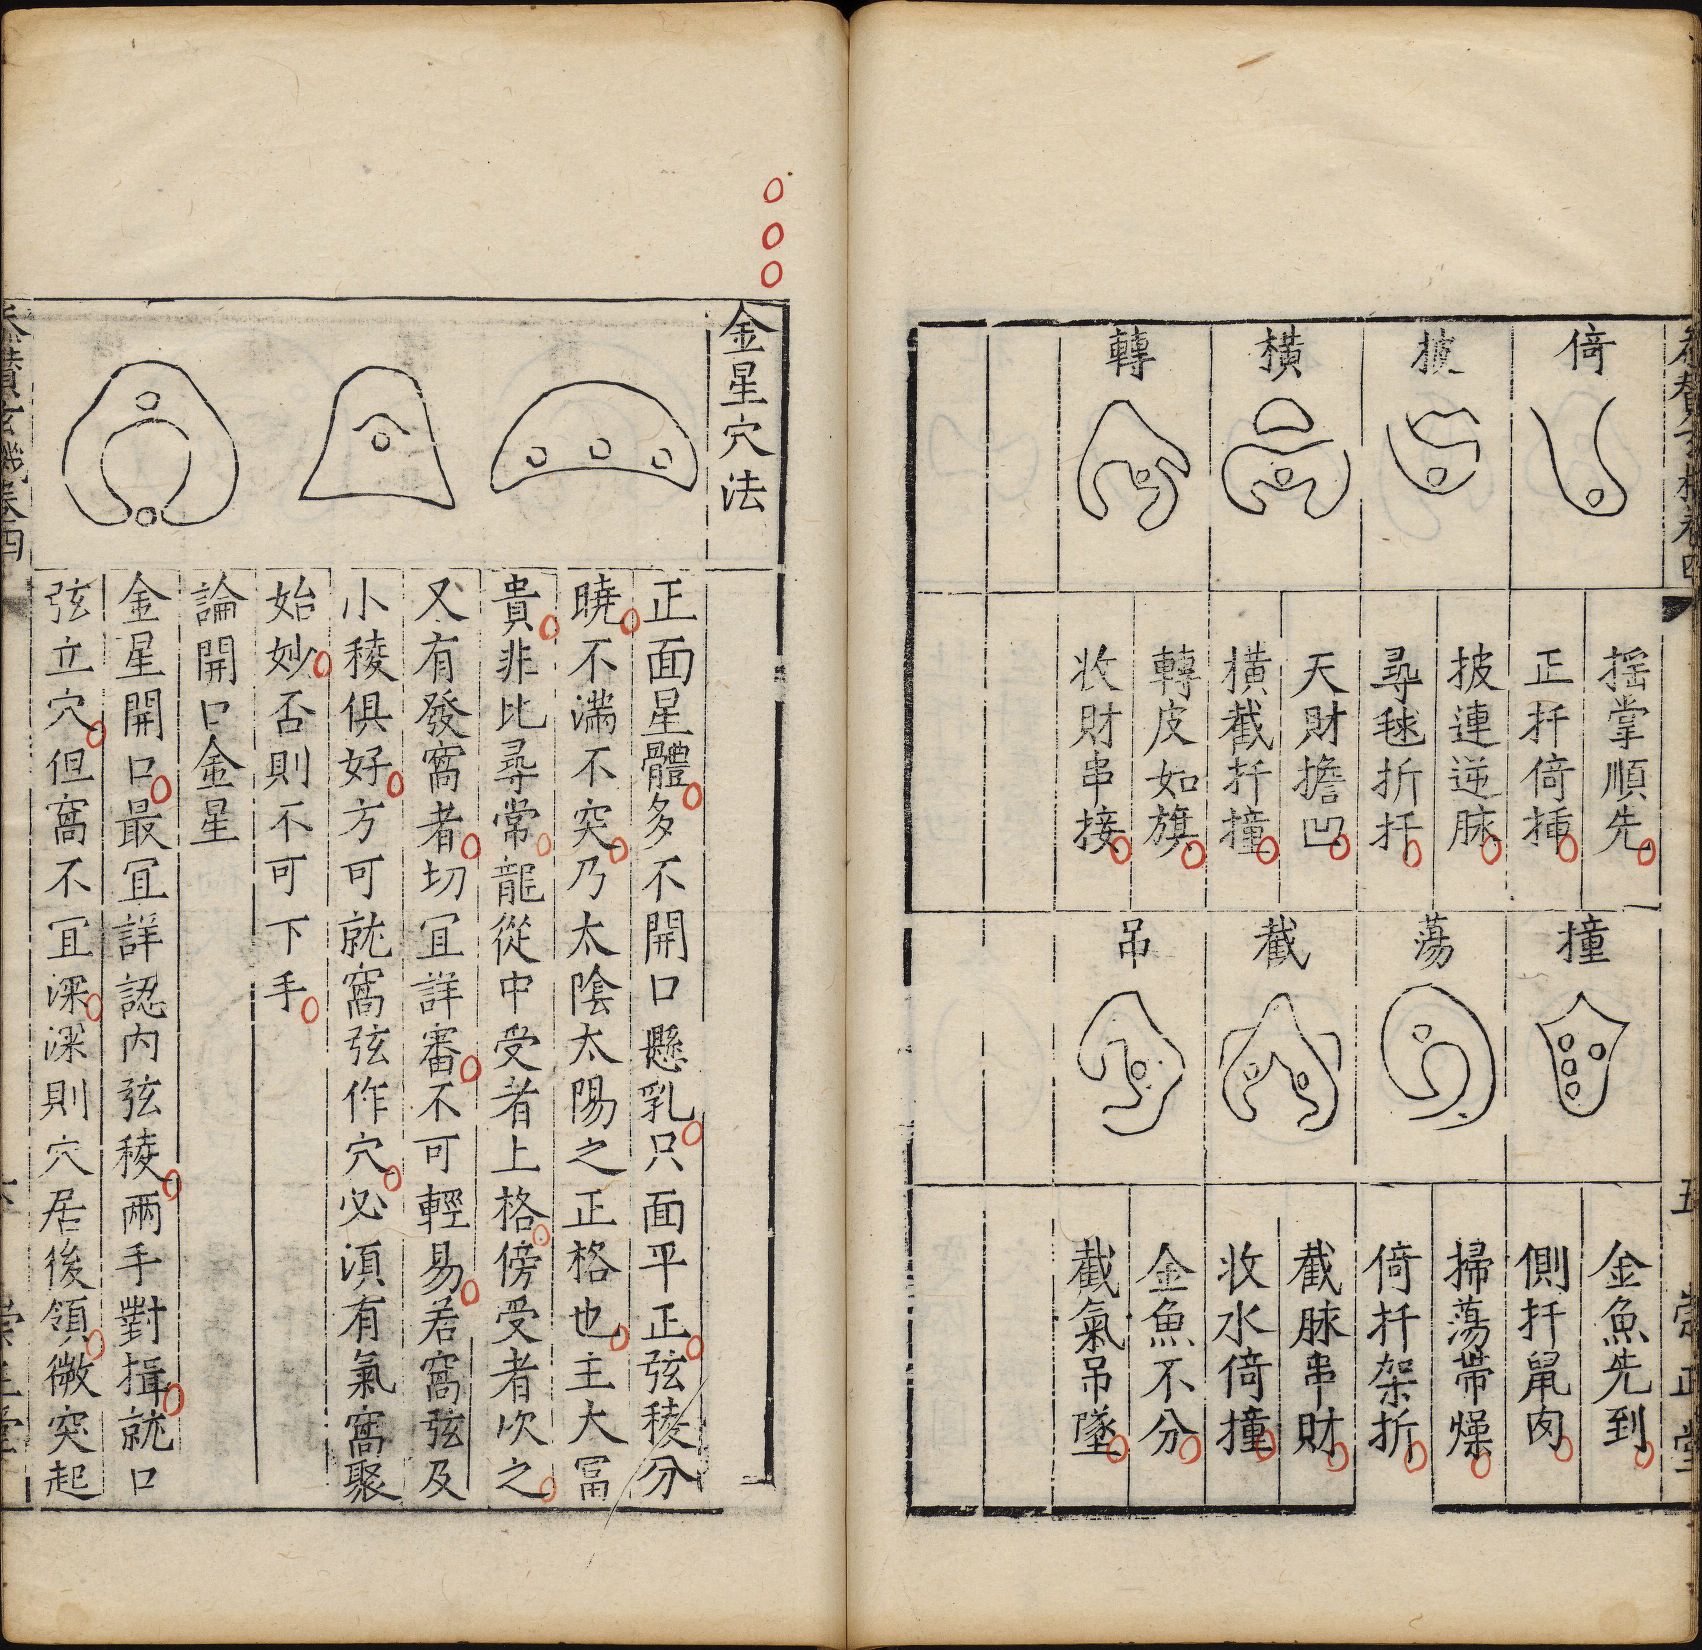 倚
摇掌順先
正扦倚揷
披
披連逆脉
尋毬折扦
橫
天財擔凹
橫截扦撞
轉
轉皮如旗
收財串接
撞
金魚先到
側扦鼠肉
蕩
掃蕩帶燥
倚扦架折
截
截脉串財
收水倚撞
吊
金魚不分
截氣吊墜
五
崇正堂
金星穴法
正面星體多不開口懸乳只面平正弦稜分
曉不滿不突乃太陰太陽之正格也主大冨
貴非比尋常龍從中受者上格傍受者次之
又有發窩者切冝詳審不可輕易若窩弦及
小稜俱好方可就窩弦作穴必湏有氣窩聚
始妙否則不可下手
論開口金星
金星開口最冝詳認内弦稜兩手對揖就口
弦立穴但窩不冝深深則穴居後領微突起